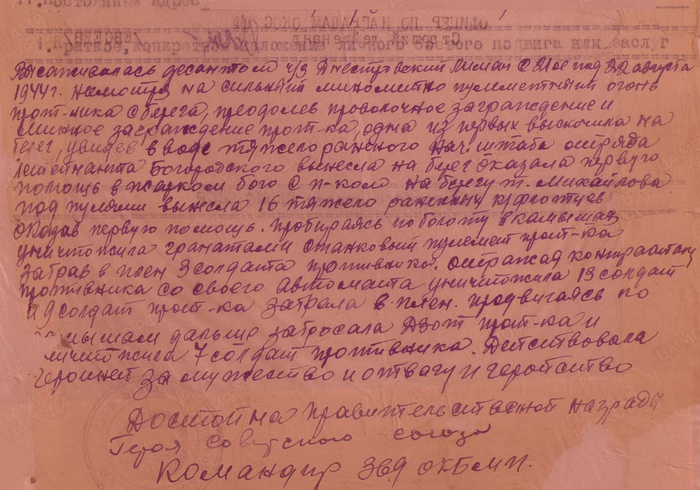 I. Краткое, конкретное изложение личного боевого подвига или заслуг
Высаживалась десантом ч/з Днестровский Лиман с 21 ое под 22 августа
1944 г. на сильный минометно пулеметный огонь
прот-ника с берега, преодолев проволочное заграждение и
минное заграждение прот-ка, одна из первых выскочила на
берег, увидев в воде тяжело раненого нач. штаба отряда
лейтенанта Богородского вынесла на берег оказала первую
помощь в жарком бою с п-ком на берегу м. Михайлова
под пулями вынесла 16 тяжело раненых
оказав первую помощь. Пробираясь по болоту в камышах
уничтожила гранатами станковый пулемет прот-ка
забрав в плен 3 солдата противника. Отражая контратаку
противника со своего автомата уничтожила 13 солдат
и 9 солдат прот-ка забрала в плен. Продвигаясь по
камышам дальше забросала Дзот прот-ка и
уничтожила 7 солдат противника. Действовала
героиней за мужество и отвагу и геройство
Достойна правительственной награды
Героя Советского союза
Командир 369 ОКБМП.